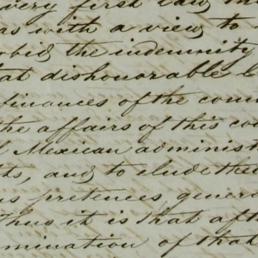 very first law
as with a view to
orbid the indemnity
at dishonorable
finances of the com
the affairs of this co
f Mexican administ
ts, and to elude the
us pretences, gener
Thus it is that aft
mination of that